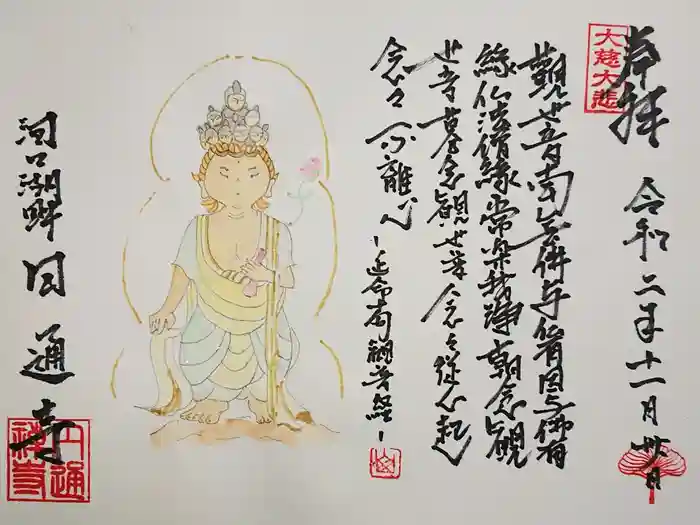 奉拝 令和二年十一月卅日
大慈大悲
觀世音南無佛与佛有因与佛有
緣仏法僧緣常楽我浄朝念觀
世音暮念観世音念々従心起
念々不離心 -延命十句觀音経-
河口湖畔 円通寺
円通禅寺